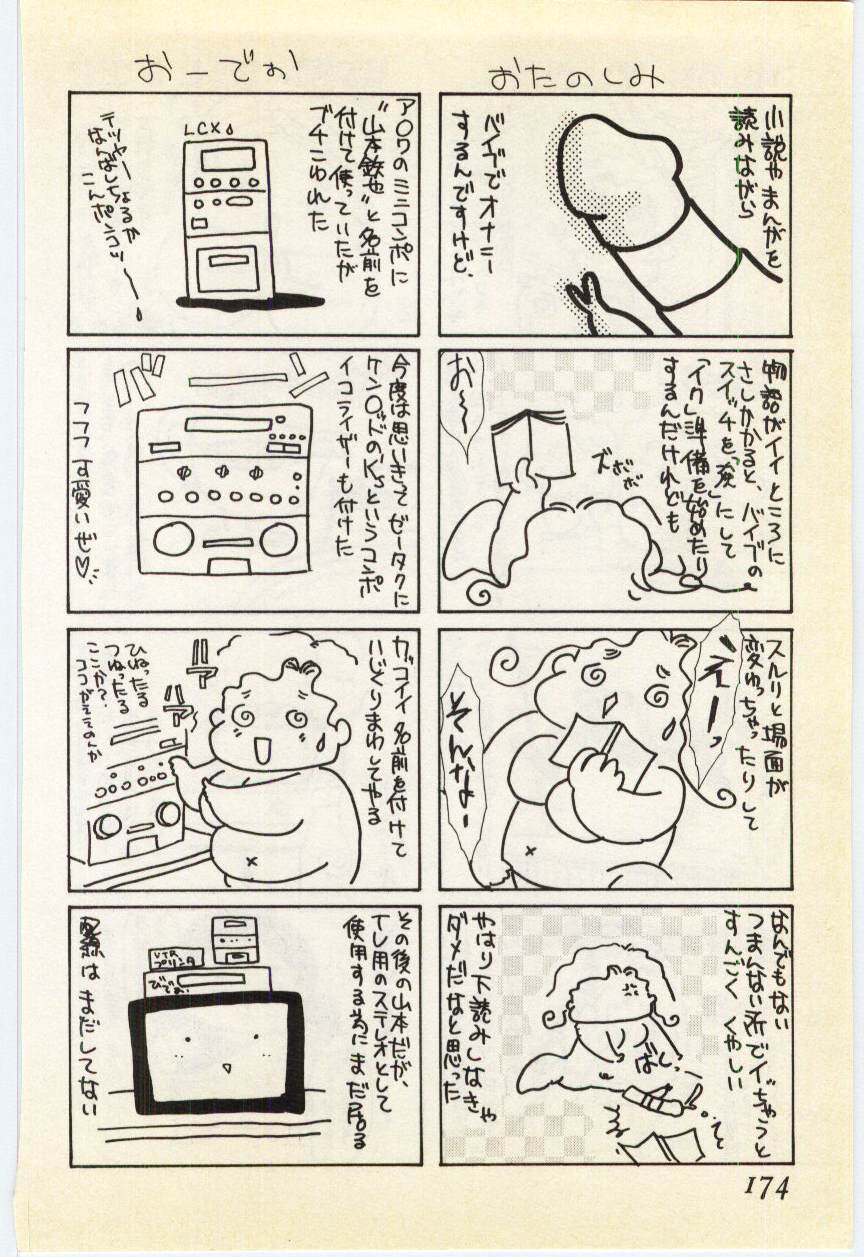 おたのしみ
小説やまんがを
読みながら
バイブでオナニー
するんですけど、
物語がイイところに
さしかかると、バイブの
スイッチを「強」にして
「イク」準備を始めたり
するんだけれども
お〜〜
ズボボボ
スルリと場面が
変わっちゃったりして
えーっ
そんなー
なんでもない
つまんない所でイッちゃうと
すんごくくやしい
ばしっ
やはり下読みしなきゃ
ダメだなと思った
おーでぃお
ア〇ワのミニコンポに
"山本鉄也"と名前を
付けて使っていたが
ブチこわれた
LCX
テツヤー
なんばしちょるか
こんポンコツ〜〜
今度は思いきってゼータクに
ケン〇ッドのK'sというコンポ
イコライザーも付けた
フフフ可愛いぜ♡
カッコイイ名前を付けて
いじくりまわしてやる
ひねったる
つねったる
ここか?
ココがええのんか
その後の山本だが、
TV用のステレオとして
使用する為にまだ居る
VTR
プリンタ
びでお
配線はまだしてない
174